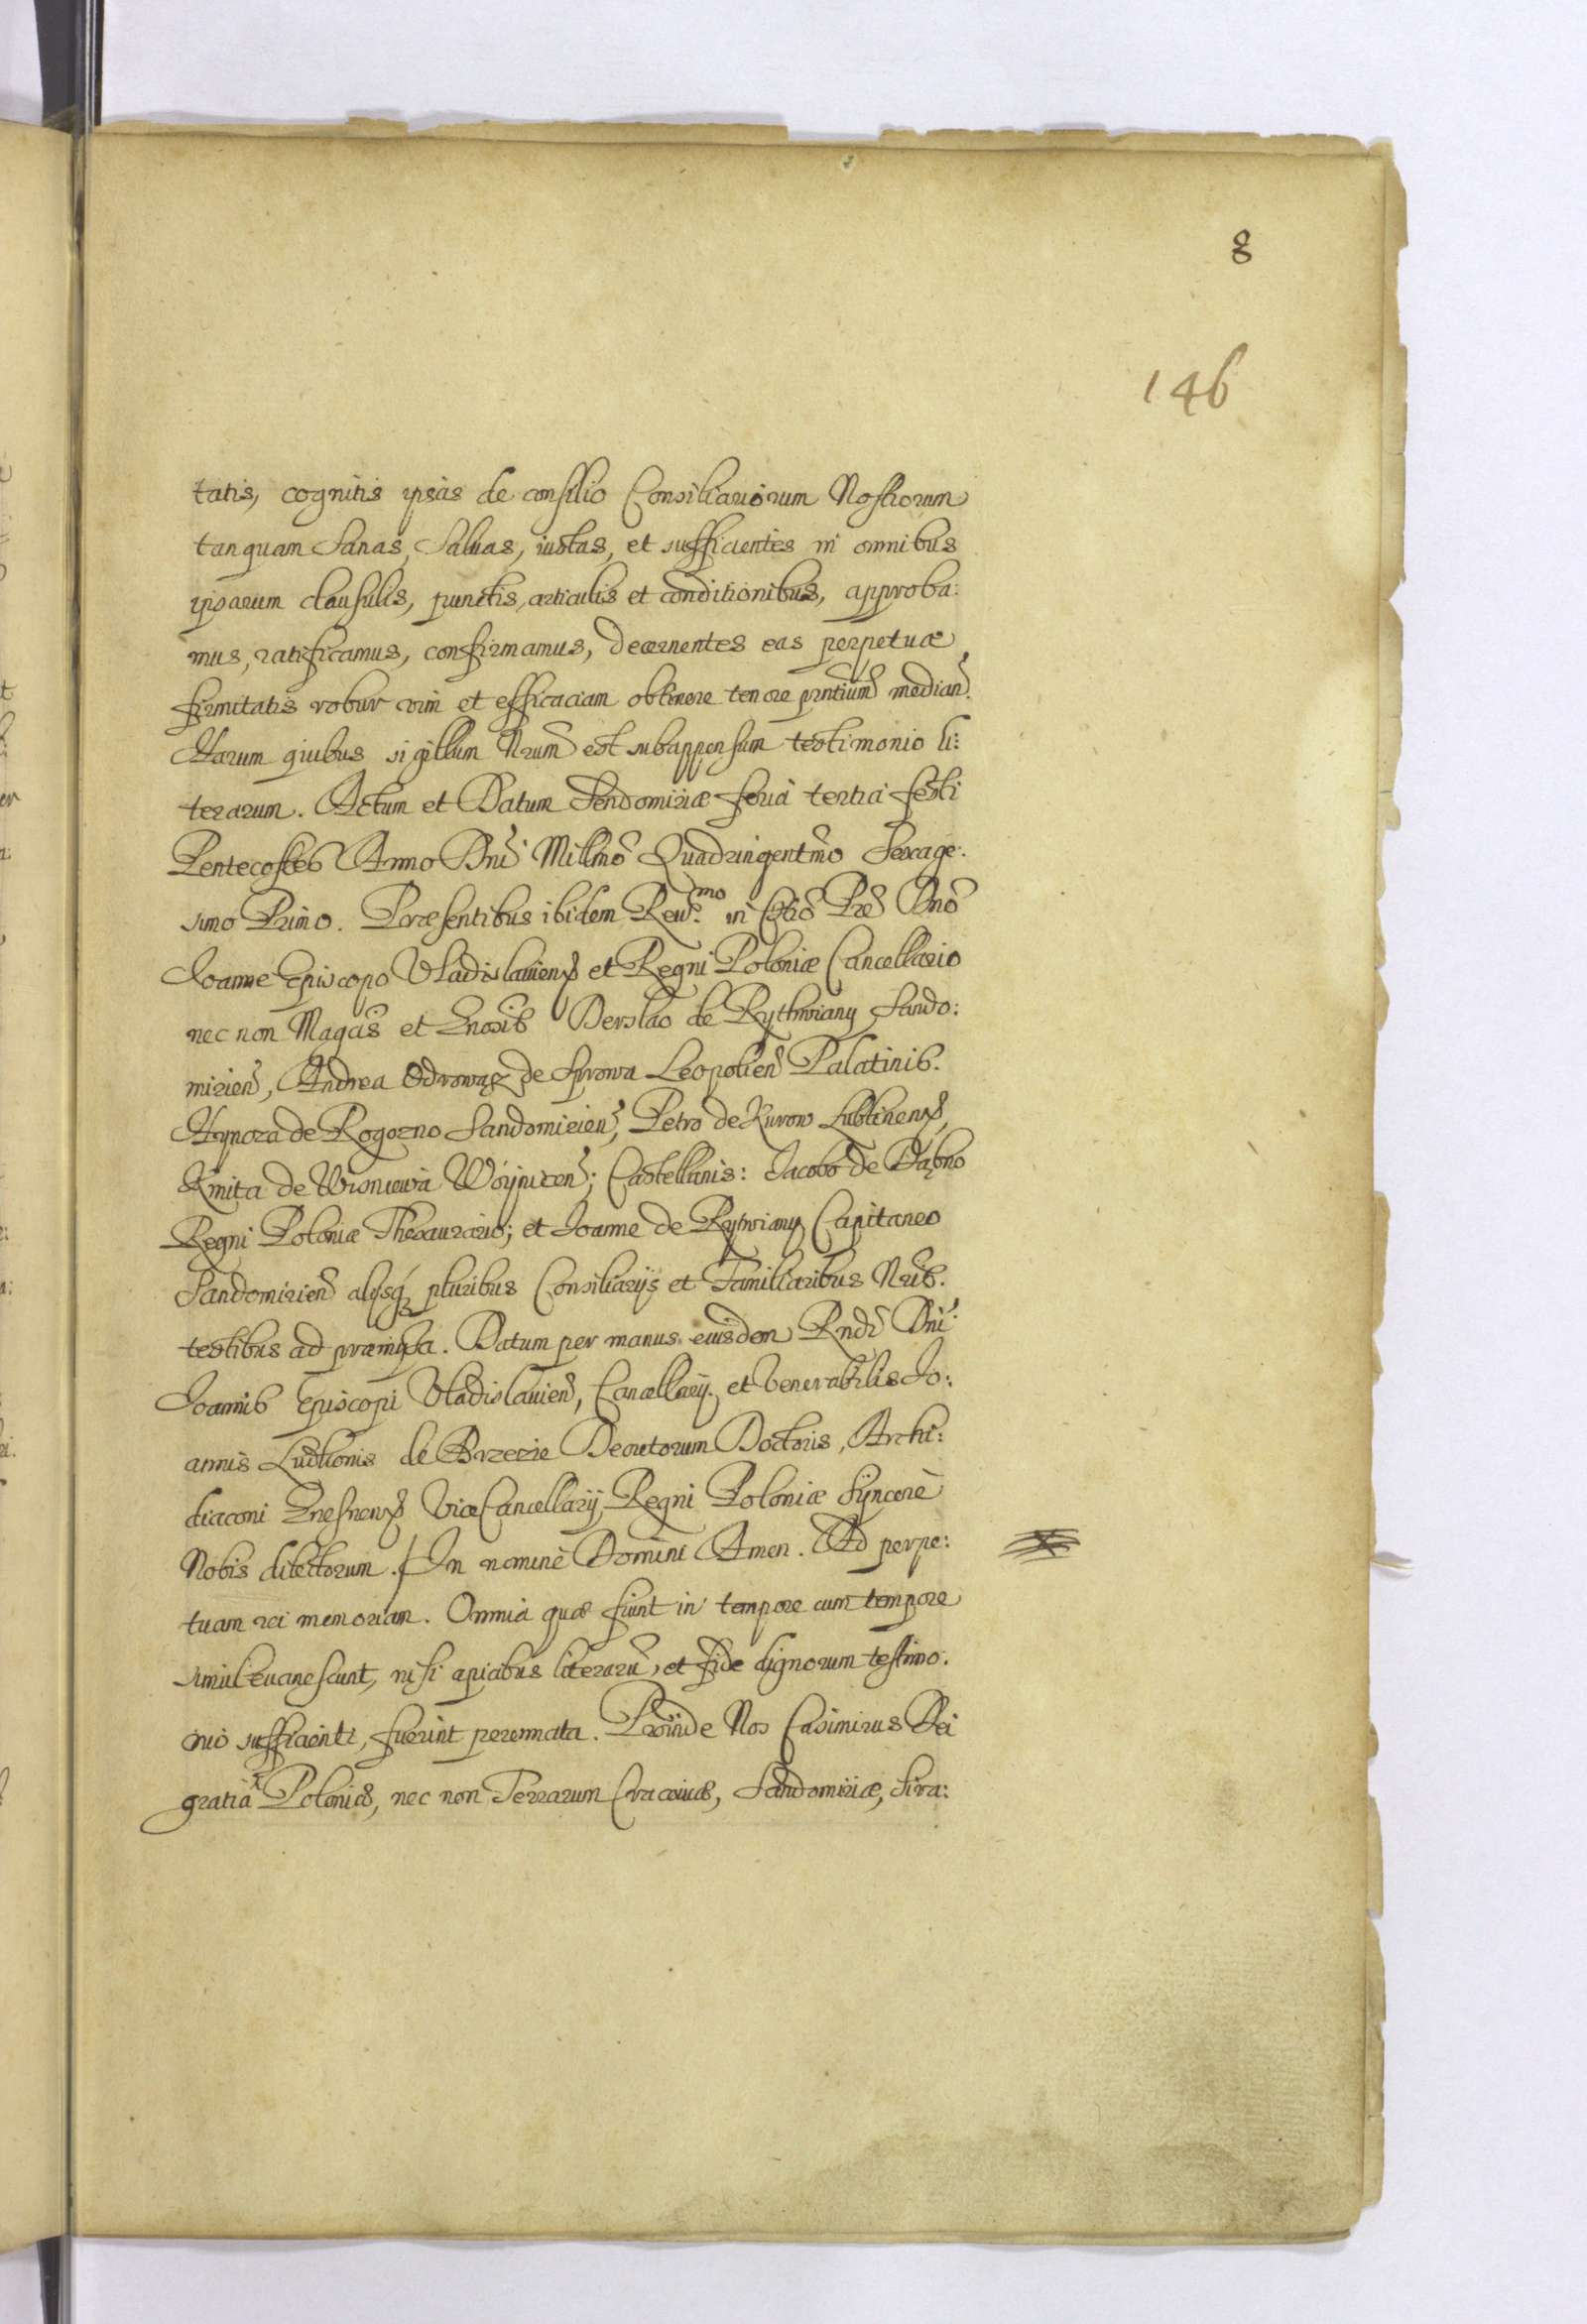 8
146
tatis, cognitis ipsas de consilio Consiliariorum Nostrorum
tanquam Sanas, Saluas, iustas, et sufficientes in omnibus
ipsarum clausulis, punctis, articulis et conditionibus, approba:
mus, ratificamus, confirmamus, decernentes eas perpetuæ
firmitatis robur vim et efficaciam obtinere tenore pntium median.
Harum quibus sigillum Nrum est subappensum testimonio li:
terarum. Actum et Datum Sendomiriæ feria tertia festi
Pentecostes Anno Dni Millmo Quadringentmo Sexage:
simo Primo. Præsentibus ibidem Reu.mo in Chro Pre Dno
Joanne Episcopo Vladislauiens et Regni Poloniæ Cancellario
nec non Magcis et Gnosis Derslao de Rythwiany Sando:
mirien, Andrea Odrowąz de Sprowa Leopolien Palatinis.
Hynoza de Rogozno Sandomirien, Petro de Kurow Lublinens,
Kmita de Wisniewa Woynicen; Castellanis: Jacobo de Dąbno
Regni Poloniæ Thesaurario; et Joanne de Rytwiany Capitaneo
Sandomirien alijsq pluribus Consiliarijs et Familiaribus Nris.
testibus ad præmissa. Datum per manus eiusdem Rndi Dni
Joannis Episcopi Vladislauien, Cancellarij. et Venerabilis Jo:
annis Lutkonis de Brzezie Decretorum Doctoris, Archi:
diaconi Gnesnens ViceCancellarij Regni Poloniæ Syncerè
Nobis dilectorum. / In nominè Domini Amen. Ad perpe:
tuam rei memoriam. Omnia quæ fiunt in tempore cum tempore
simul euanescunt, nisi apicibus literaru, et fide dignorum testimo:
nio sufficienti, fuerint perennata. Proinde Nos Casimirus Dei
gratia Poloniæ, nec non Terrarum Cracouiæ, Sandomiriæ, Sira: